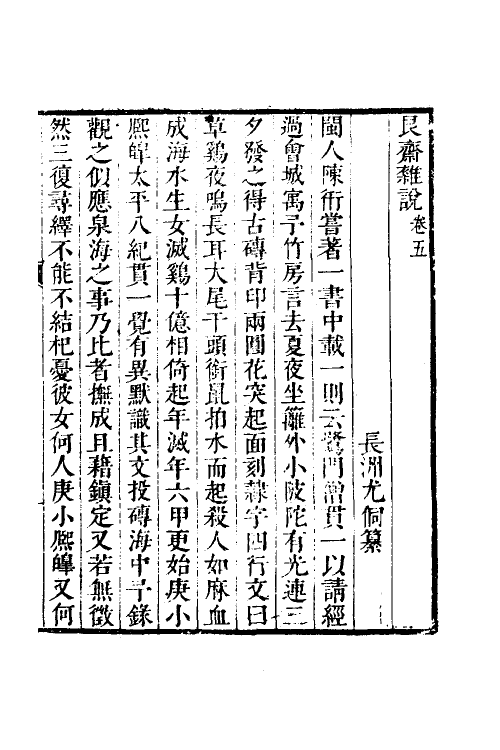 艮齋雜說卷五
長洲尤侗纂
閩人陳衎嘗著一書中載一則云鷺門僧貫一以請經
過會城寓予竹房言去夏夜坐籬外小陂陀有光連三
夕發之得古磚背印兩圓花突起面刻隸字四行文曰
草鷄夜鳴長耳大尾干頭銜鼠拍水而起殺人如麻血
成海水生女滅鷄十億相倚起年滅年六甲更始庚小
熈皥太平八紀貫一覺有異默識其文投磚海中予錄
觀之似應泉海之事乃比者撫成且藉鎭定又若無徵
然三復尋繹不能不結杞憂彼女何人庚小熈皥又何